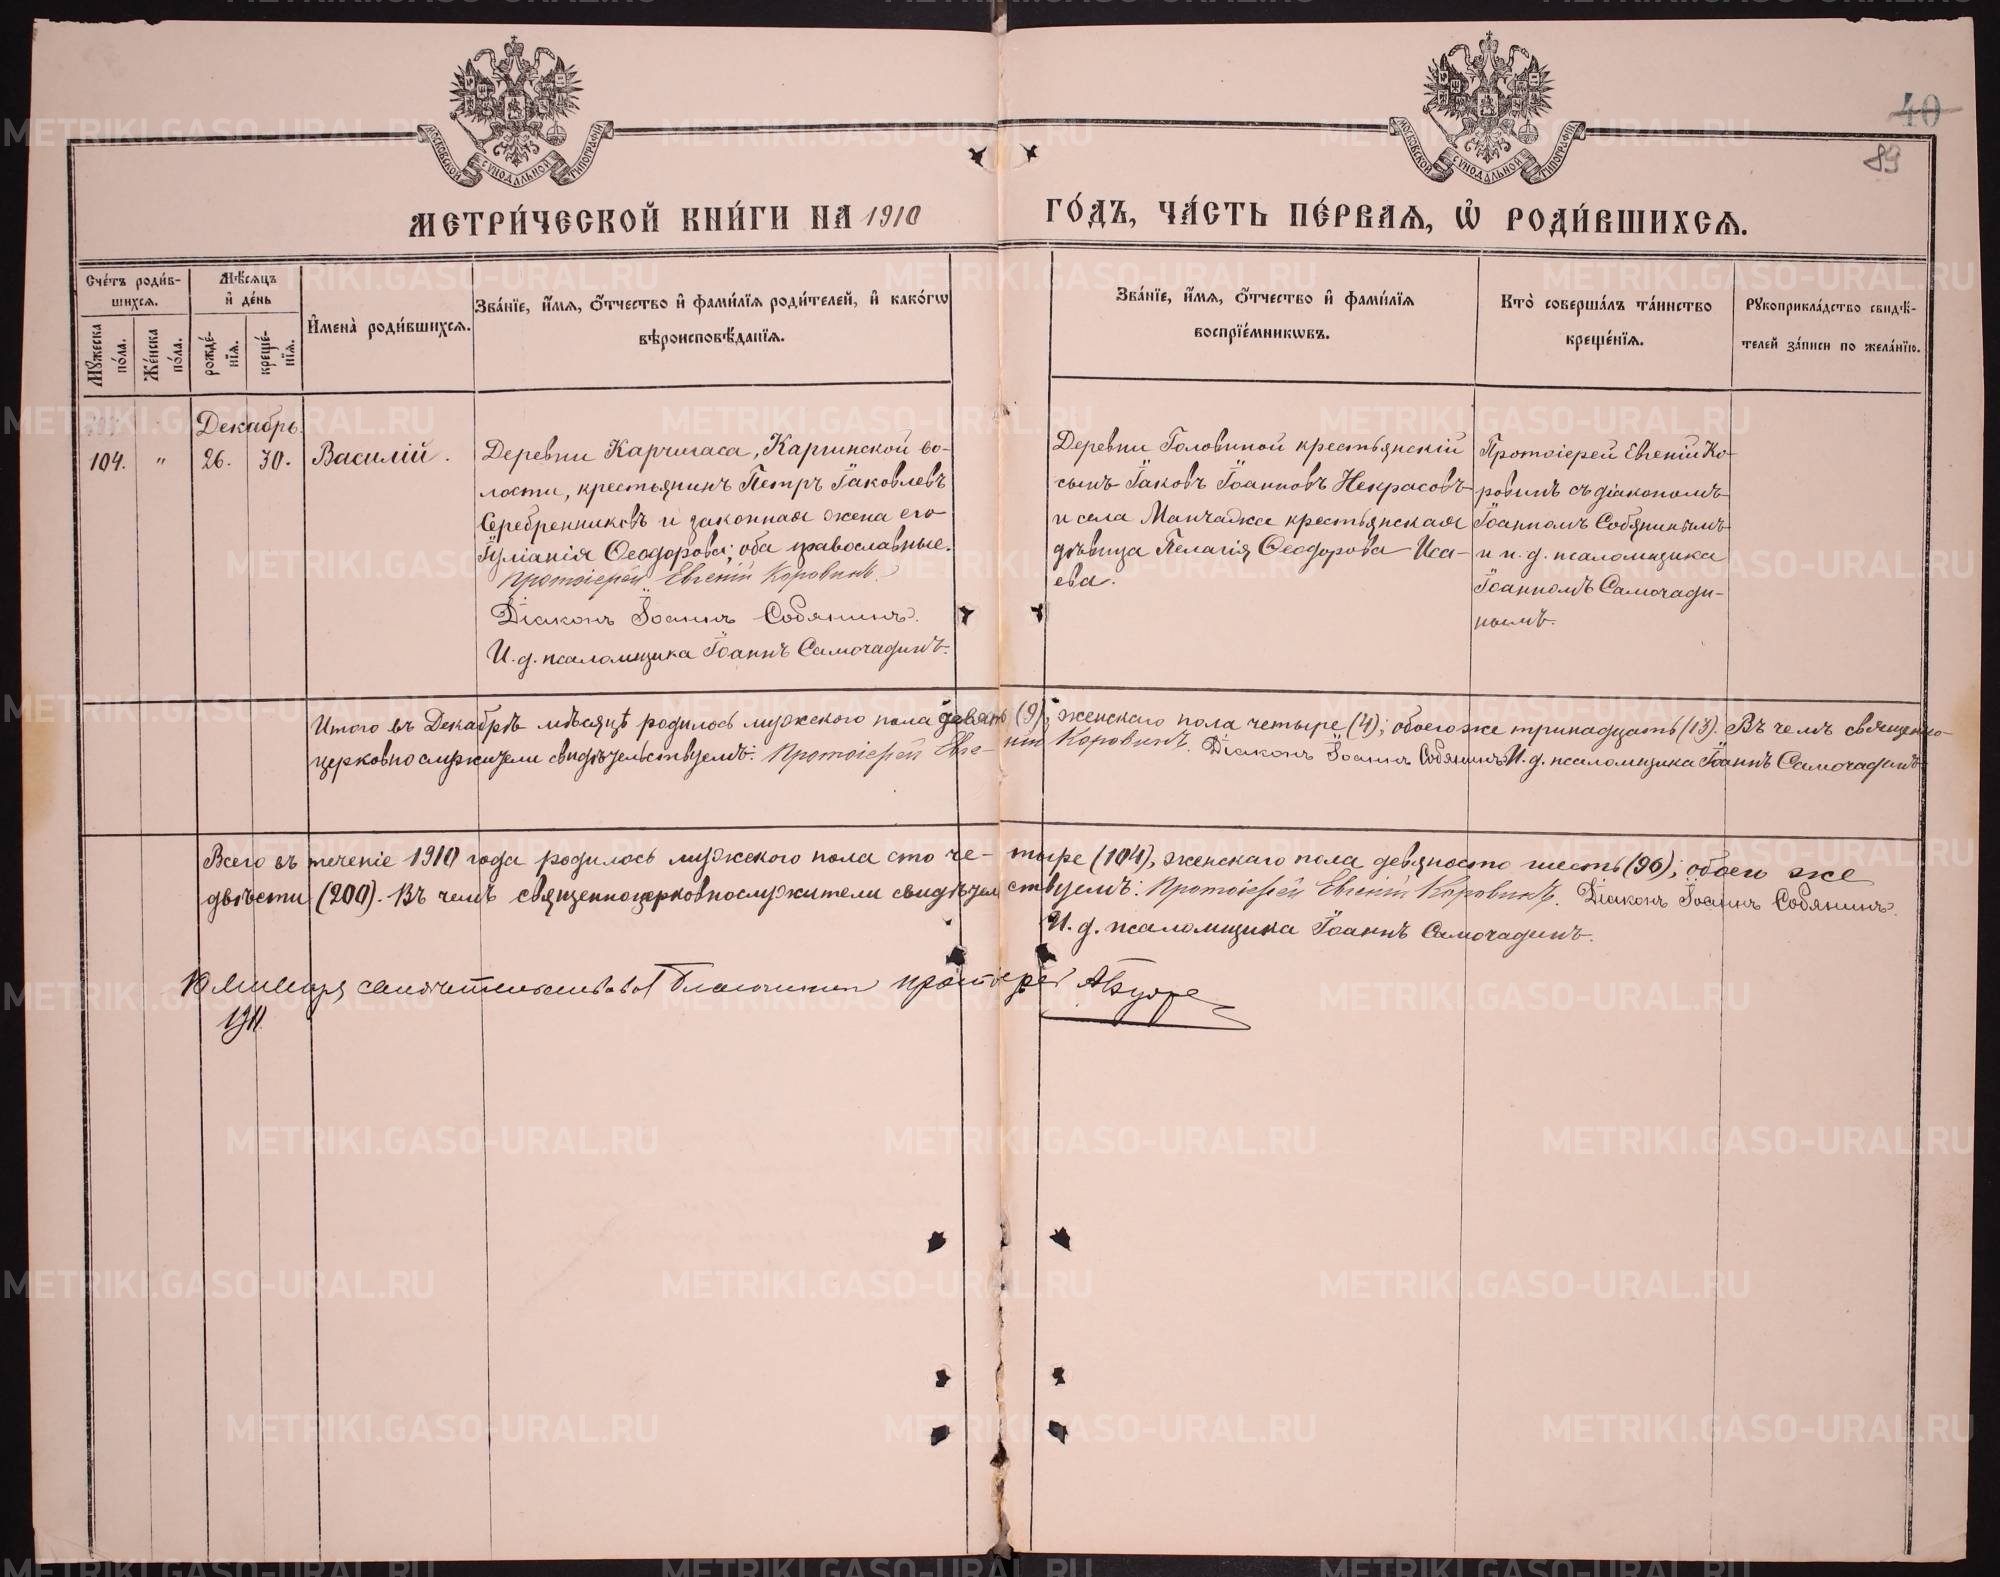 40
89
МОСКОВСКОЙ СѴНОДАЛЬНОЙ ТИПОГРАФІИ
МОСКОВСКОЙ СѴНОДАЛЬНОЙ ТИПОГРАФІИ
МЕТРИ́ЧЕСКОЙ КНИ́ГИ НА 1910 ГО́ДЪ, ЧА́СТЬ ПЕ́РВАѦ, Ѽ РОДИ́ВШИХСѦ.
Сче́тъ роди́в-
шихсѧ.
Мꙋ́жеска по́ла.
Же́нска по́ла.
Мѣ́сѧцъ
и҆ де́нь
рожде́-
нїѧ.
креще́-
нїѧ.
И҆мена̀ роди́вшихсѧ.
Зва́нїе, и҆́мѧ, ѻ҆́тчество и҆ фами́лїѧ роди́телей, и҆ како́гѡ
вѣроисповѣ́данїѧ.
Зва́нїе, и҆́мѧ, ѻ҆́тчество и҆ фами́лїѧ
воспрїе́мникѡвъ.
Кто̀ соверша́лъ та́инство
креще́нїѧ.
Рꙋкоприкла́дство свидѣ́-
телей за́писи по жела́нїю.
Декабрь.
104.
"
26.
30.
Василій.
Деревни Карчигаса, Каргинской во-
лости, крестьянинъ Петръ Іаковлевъ
Серебренниковъ и законная жена его
Іуліанія Ѳеодорова; оба православные.
Протоіерей Евгеній Коровинъ.
Діаконъ Іоаннъ Собянинъ.
И. д. псаломщика Іоаннъ Самочадинъ.
Деревни Головиной крестьянскій
сынъ Іаковъ Іоанновъ Некрасовъ
и села Манчажа крестьянская
дѣвица Пелагія Ѳеодорова Иса-
ева.
Протоіерей Евгеній Ко-
ровинъ съ діакономъ
Іоанномъ Собянинымъ
и и. д. псаломщика
Іоанномъ Самочади-
нымъ.
Итого въ Декабрѣ мѣсяцѣ родилось мужского пола девять (9), женскаго пола четыре (4); обоего же тринадцать (13). Въ чемъ священно-
церковнослужители свидѣтельствуемъ: Протоіерей Евгеній Коровинъ. Діаконъ Іоаннъ Собянинъ. И. д. псаломщика Іоаннъ Самочадинъ.
Всего въ теченіе 1910 года родилось мужского пола сто четыре (104), женскаго пола девяносто шесть (96); обоего же
двѣсти (200). Въ чемъ священноцерковнослужители свидѣтельствуемъ: Протоіерей Евгеній Коровинъ. Діаконъ Іоаннъ Собянинъ.
И. д. псаломщика Іоаннъ Самочадинъ.
Января свидѣтельствовалъ благочинный протоіерей
1911
METRIKI.GASO-URAL.RU